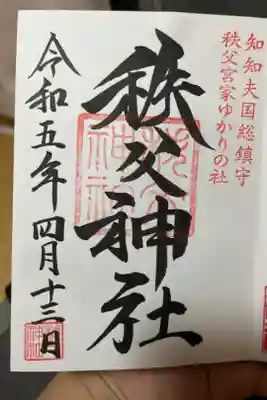 知知夫国総鎮守
秩父宮家ゆかりの社
秩父神社
令和五年四月十三日